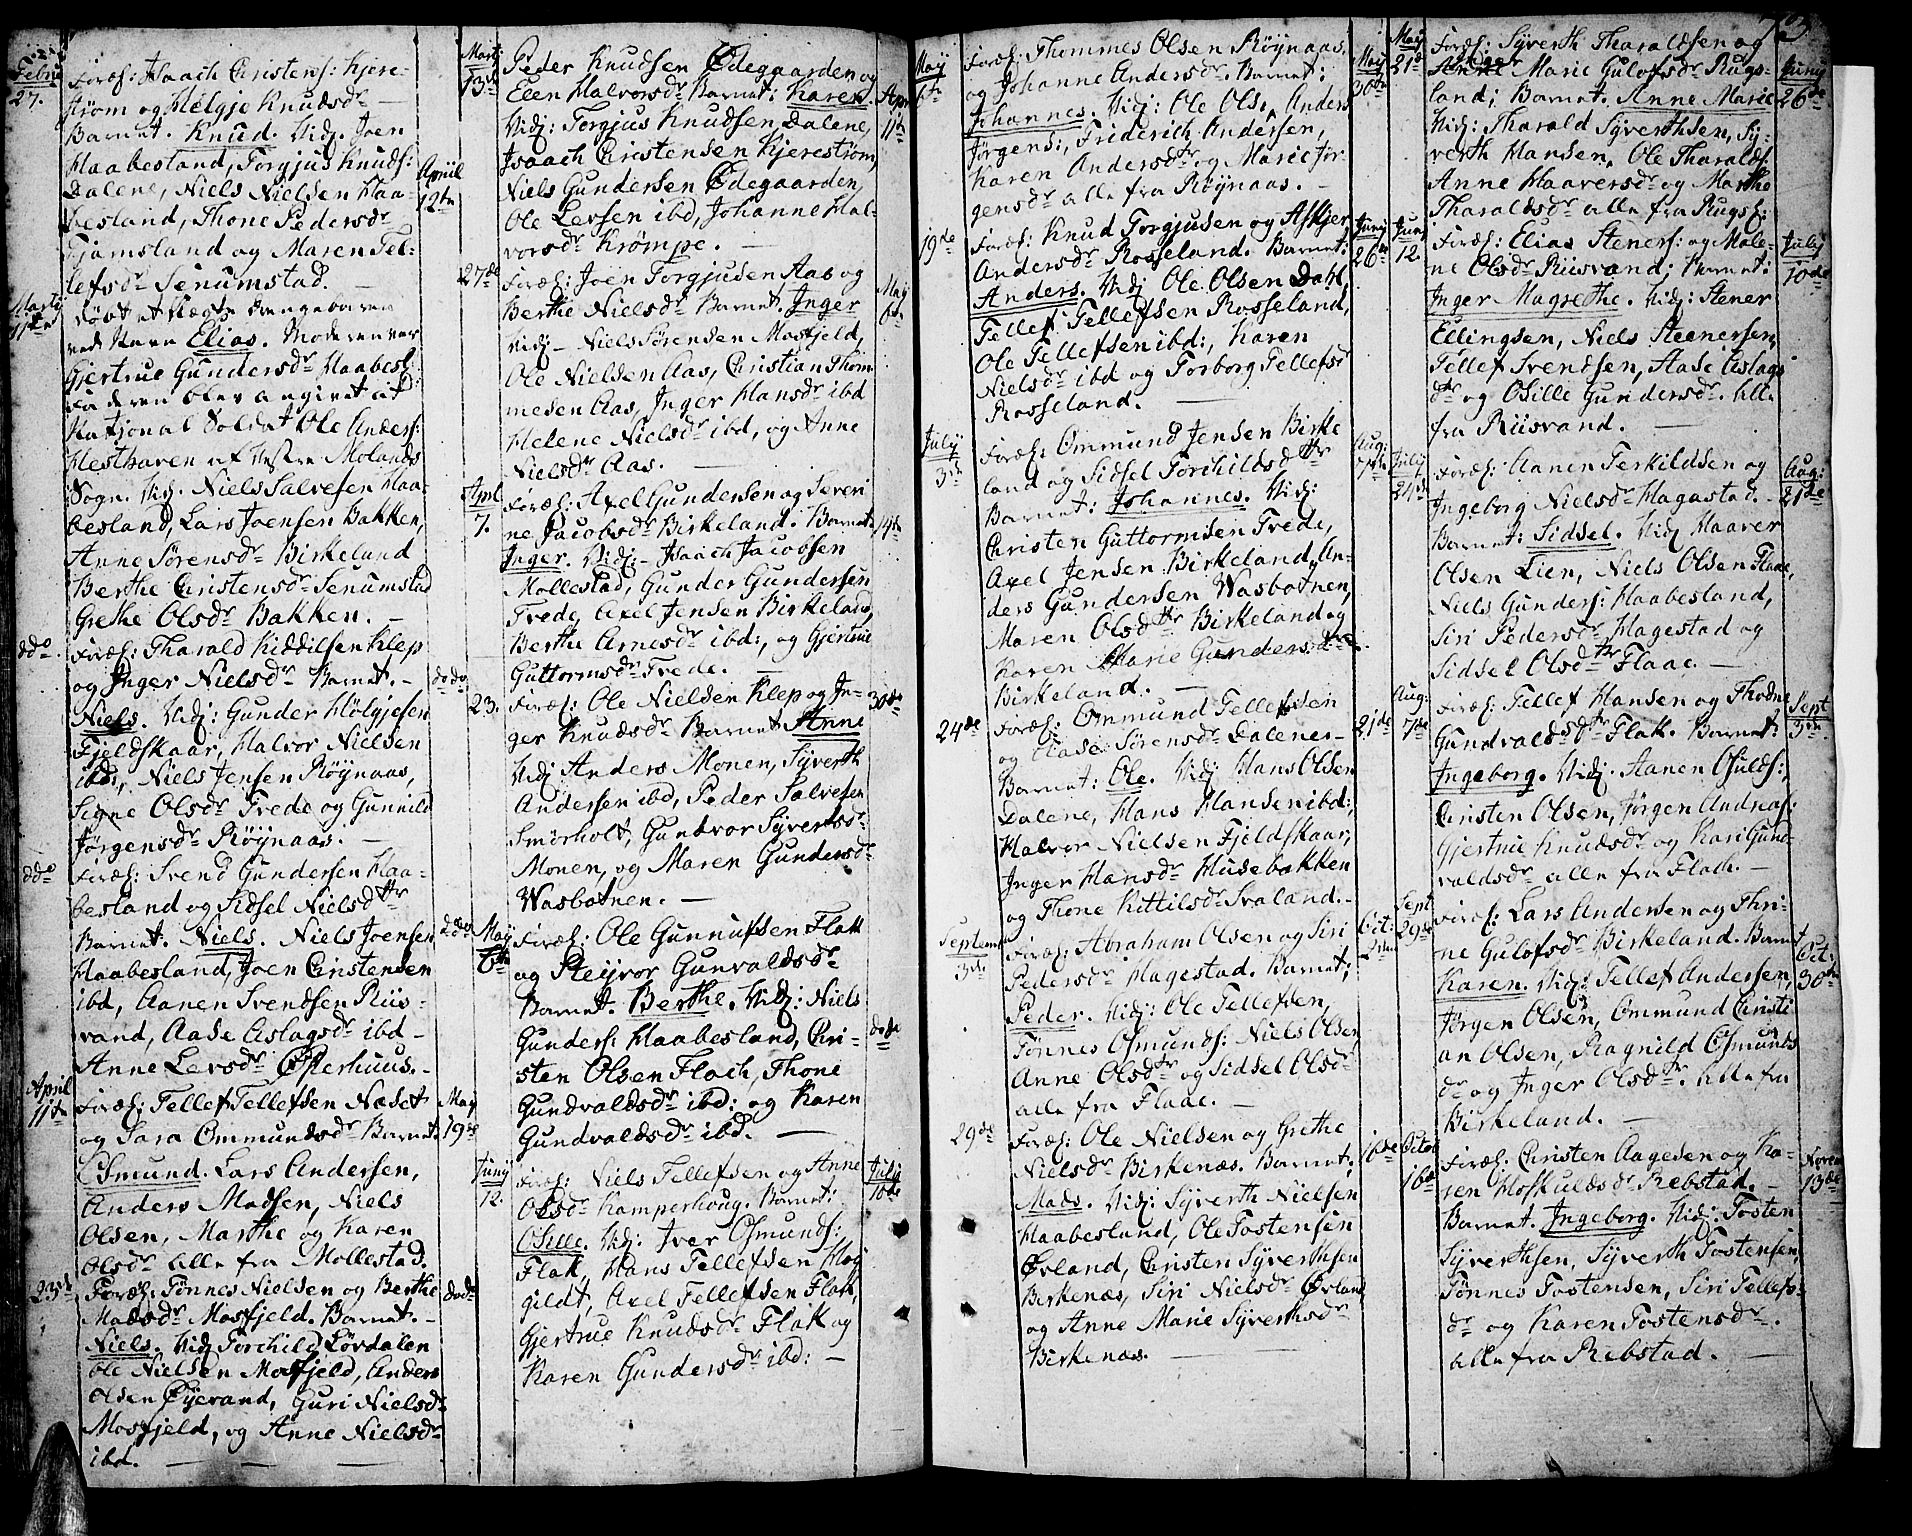 Febru
27.
Foræl: Isaach Christens: Kjere-
strøm og Helgje Knudsdr
Barnet. Knud. Vidj. Joen
Haabesland, Torgjus Knuds:
Dalene, Niels Nielsen Haa-
besland, Thone Pedersdr
Tjamsland og Maren Tel-
lefsdr Senumstad. –
April
12te
Marty
11te
døbt et uægte Drengebarn
ved Navn Elias. Moderen var
Gjertrue Gundersdr Haabesl:
Faderen blev angivet at
National Soldat Ole Anders:
Hesthaven af Vestre Molands
Sogn. Vidj. Niels Salvesen Haa-
besland, Lars Joensen Bakken,
Anne Sørensdr Birkeland
Berthe Christensdr Senumstad
Grethe Olsdr Bakken. –
ddo.
Foræl: Tharald Kiddilsen Klep
og Inger Nielsdr Barnet. –
Niels. Vidj: Gunder Hølgjesen
Fjeldskaar, Halvor Nielsen
ibd:, Niels Jensen Røynaas,
Signe Olsdr Trede og Gunnild
Jørgensdr Røynaas. –
dodo
ddo
Foræl: Svend Gundersen Haa-
besland og Sidsel Nielsdtr
Barnet. Niels. Niels Joensen
Haabesland, Joen Christensen
ibd, Aanen Svendsen Riis-
vand, Aase Aslagsdr ibd –
Anne Lersdr Østerhuus. –
dodo
April
11te
Foræl: Tellef Tellefsen Næset
og Sara Ommundsdr Barnet.
Osmund. Lars Andersen,
Anders Madsen, Niels
Olsen, Marthe og Karen
Olsdr alle fra Mollestad.
May
19de
23de
Foræl: Tønnes Nielsen og Berthe
Madsdr Mosfjeld. Barnet. –
Niels. Vidj Torchild Lørdalen
Ole Nielsen Mosfjeld, Anders
Olsen Øyevand, Guri Nielsdr
Mosfjeld, og Anne Nielsdr
ibd. – – –
dodo
Marty
13de
Peder Knudsen Ødegaarden og
Elen Halvorsdr Barnet: Karen.
Vidj: Torgjus Knudsen Dalene,
Isaach Christensen Kjerestrøm,
Niels Gundersen Ødegaarden,
Ole Lersen ibd, Johanne Hal-
vorsdr Krømpe. –
Apr
11te
27de
Foræl: Joen Torgjusen Aas og
Berthe Nielsdr Barnet. Inger
Vidj – Niels Sørensen Mosfjeld,
Ole Nielsen Aas, Christian Thom-
mesen Aas, Inger Hansdr ibd
Helene Nielsdr ibd, og Anne
Nielsdr Aas. –
May
6te
Apri
7.
Foræl: Axel Gundersen og Severi
ne Jacobsdr Birkeland. Barnet.
Inger. Vidj: – Isaach Jacobsen
Mollestad, Gunder Gundersen
Trede, Axel Jensen Birkeland,
Berthe Arnesdr ibd:, og Gjertrue
Guttormsdr Trede. –
14te
23.
Foræl: Ole Nielsen Klep og In-
ger Knudsdr Barnet. Anne
Vidj Anders Monen, Syverth
Andersen ibd, Peder Salvesen
Smørholt, Gundvor Syvertsdr
Monen, og Maren Gundersdr
Wasbotnen. –
30de
May
6te
Foræl: Ole Gunnufsen Flak
og Steyvor Gunvaldsdr
Barnet. Berthe. Vidj: Niels
Gunders: Haabesland, Chri-
sten Olsen Flach, Thone
Gundvaldsdr ibd: og Karen
Gundvaldsdr ibd. –
dodo
Juny
12.
Foræl: Niels Tellefsen og Anne
Olsdr Kamperhoug. Barnet:
Osille. Vidj: Iver Osmunds:
Flak, Hans Tellefsen Høy
gildt, Axel Tellefsen Flak,
Gjertrue Knudsdr Flak og
Karen Gundersdr ibd: –
July
10de
73
May
6te
Foræl: Thommes Olsen Røynaas
og Johanne Andersdr. Barnet:
Johannes. Vidj: Ole Ols:, Anders
Jørgens:, Friderich Andersen,
Karen Andersdtr og Marie Jør-
gensdr alle fra Røynaas. –
May
30te
19de
Foræl: Knud Torgjusen og Askjer
Andersdr Rosseland. Barnet:
Anders. Vidj Ole Olsen Dahl,
Tellef Tellefsen Rosseland,
Ole Tellefsen ibd:, Karen
Nielsdr ibd og Torborg Tellefsdr
Rosseland. –
Juny
26te
July
3de
Foræl: Ommund Jensen Birke
land og Sidsel Torchildsdtr
Barnet: Johannes. Vidj:
Christen Guttormsen Trede,
Axel Jensen Birkeland, An-
ders Gundersen Wasbotnen,
Maren Olsdtr Birkeland og
Karen Marie Gundersdtr
Birkeland. –
Aug:
7te
24de
Foræl: Ommund Tellefsen
og Aase Sørensdr Dalene –
Barnet: Ole. Vidj Hans Olsen
Dalene, Hans Hansen ibd:,
Halvor Nielsen Fjeldskaar,
Inger Hansdr Husebakken
og Thone Kittilsdr Svaland. –
21de
Septem
3de
Foræl: Abraham Olsen og Siri
Pedersdr Hagestad. Barnet;
Peder. Vidj: Ole Tellefsen,
Tønnes Osmunds: Niels Olsen
Anne Olsdtr og Sidsel Olsdr
alle fra Flaae. –
Oct.
2den
29de
Foræl: Ole Nielsen og Grethe
Nielsdr Birkenæs. Barnet;
Mads. Vidj: Syverth Nielsen
Haabesland, Ole Tostensen
Øvland, Christen Syverthsen
Birkenæs, Siri Nielsdr Øvland
og Anne Marie Syverthsdr
Birkenæs. –
16de
May
21de
Foræl: Syverth Tharaldsen og
Anne Marie Gulofsdr Rugs-
land; Barnet. Anne Marie
Vidj: Tharald Syverthsen, Sy-
verth Hansen, Ole Tharalds:
Anne Haaversdr og Marthe
Tharaldsdr alle fra Rugsl:
Juny
26de
Juny
12.
Foræl: Elias Steners: og Male-
ne Olsdr Riisvand; Barnet:
Inger Magrethe. Vidj: Stener
Ellingsen, Niels Steenersen,
Tellef Svendsen, Aase Aslags
dr og Osille Gundersdr. Alle
fra Riisvand. –
July
10de
July
24de
Foræl: Aanen Terkildsen og
Ingeborg Nielsdr Hagestad. –
Barnet: Sidsel. Vidj Haaver
Olsen Lien, Niels Olsen Flaae,
Niels Gunders: Haabesland,
Siri Pedersdr Hagestad og
Sidsel Olsdtr Flaae. –
Aug:
21de
Aug:
7de
Foræl: Tellef Hansen og Thodne
Gundvaldsdtr Flak. Barnet:
Ingeborg. Vidj: Aanen Osulds:,
Christen Olsen, Jørgen Andnas:
Gjertrue Knudsdr og Kari Gund-
valdsdr alle fra Flak. –
Sept
3de.
Sept
29de
Foræl: Lars Andersen og Thri-
ne Gulofsdr Birkeland. Barnet
Karen. Vidj: Tellef Andersen,
Jørgen Olsen, Ommund Christi
an Olsen, Ragnild Osmunds
dr og Inger Olsdtr. Alle fra
Birkeland. –
Oct:
30te
Octob
16de
Foræl: Christen Aagesen og Ka-
ren Hoskuldsdr Rebstad. –
Barnet. Ingeborg. Vidj: Tosten
Syverthsen, Syverth Tostensen,
Tønnes Tostensen, Siri Tellefs-
dr og Karen Tostensdr.
Alle fra Rebstad. –
Novem
13de